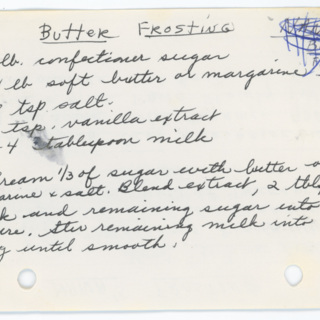 Butter Frosting
lb. confectioner sugar
lb soft butter or margarine
tsp salt.
tsp. vanilla extract
4 3 tablespoon milk
ream 1/3 of sugar with butter o
arine & salt. Blend extract, 2 tbl
k and remaining sugar into
ure. Stir remaining milk into
g until smooth.